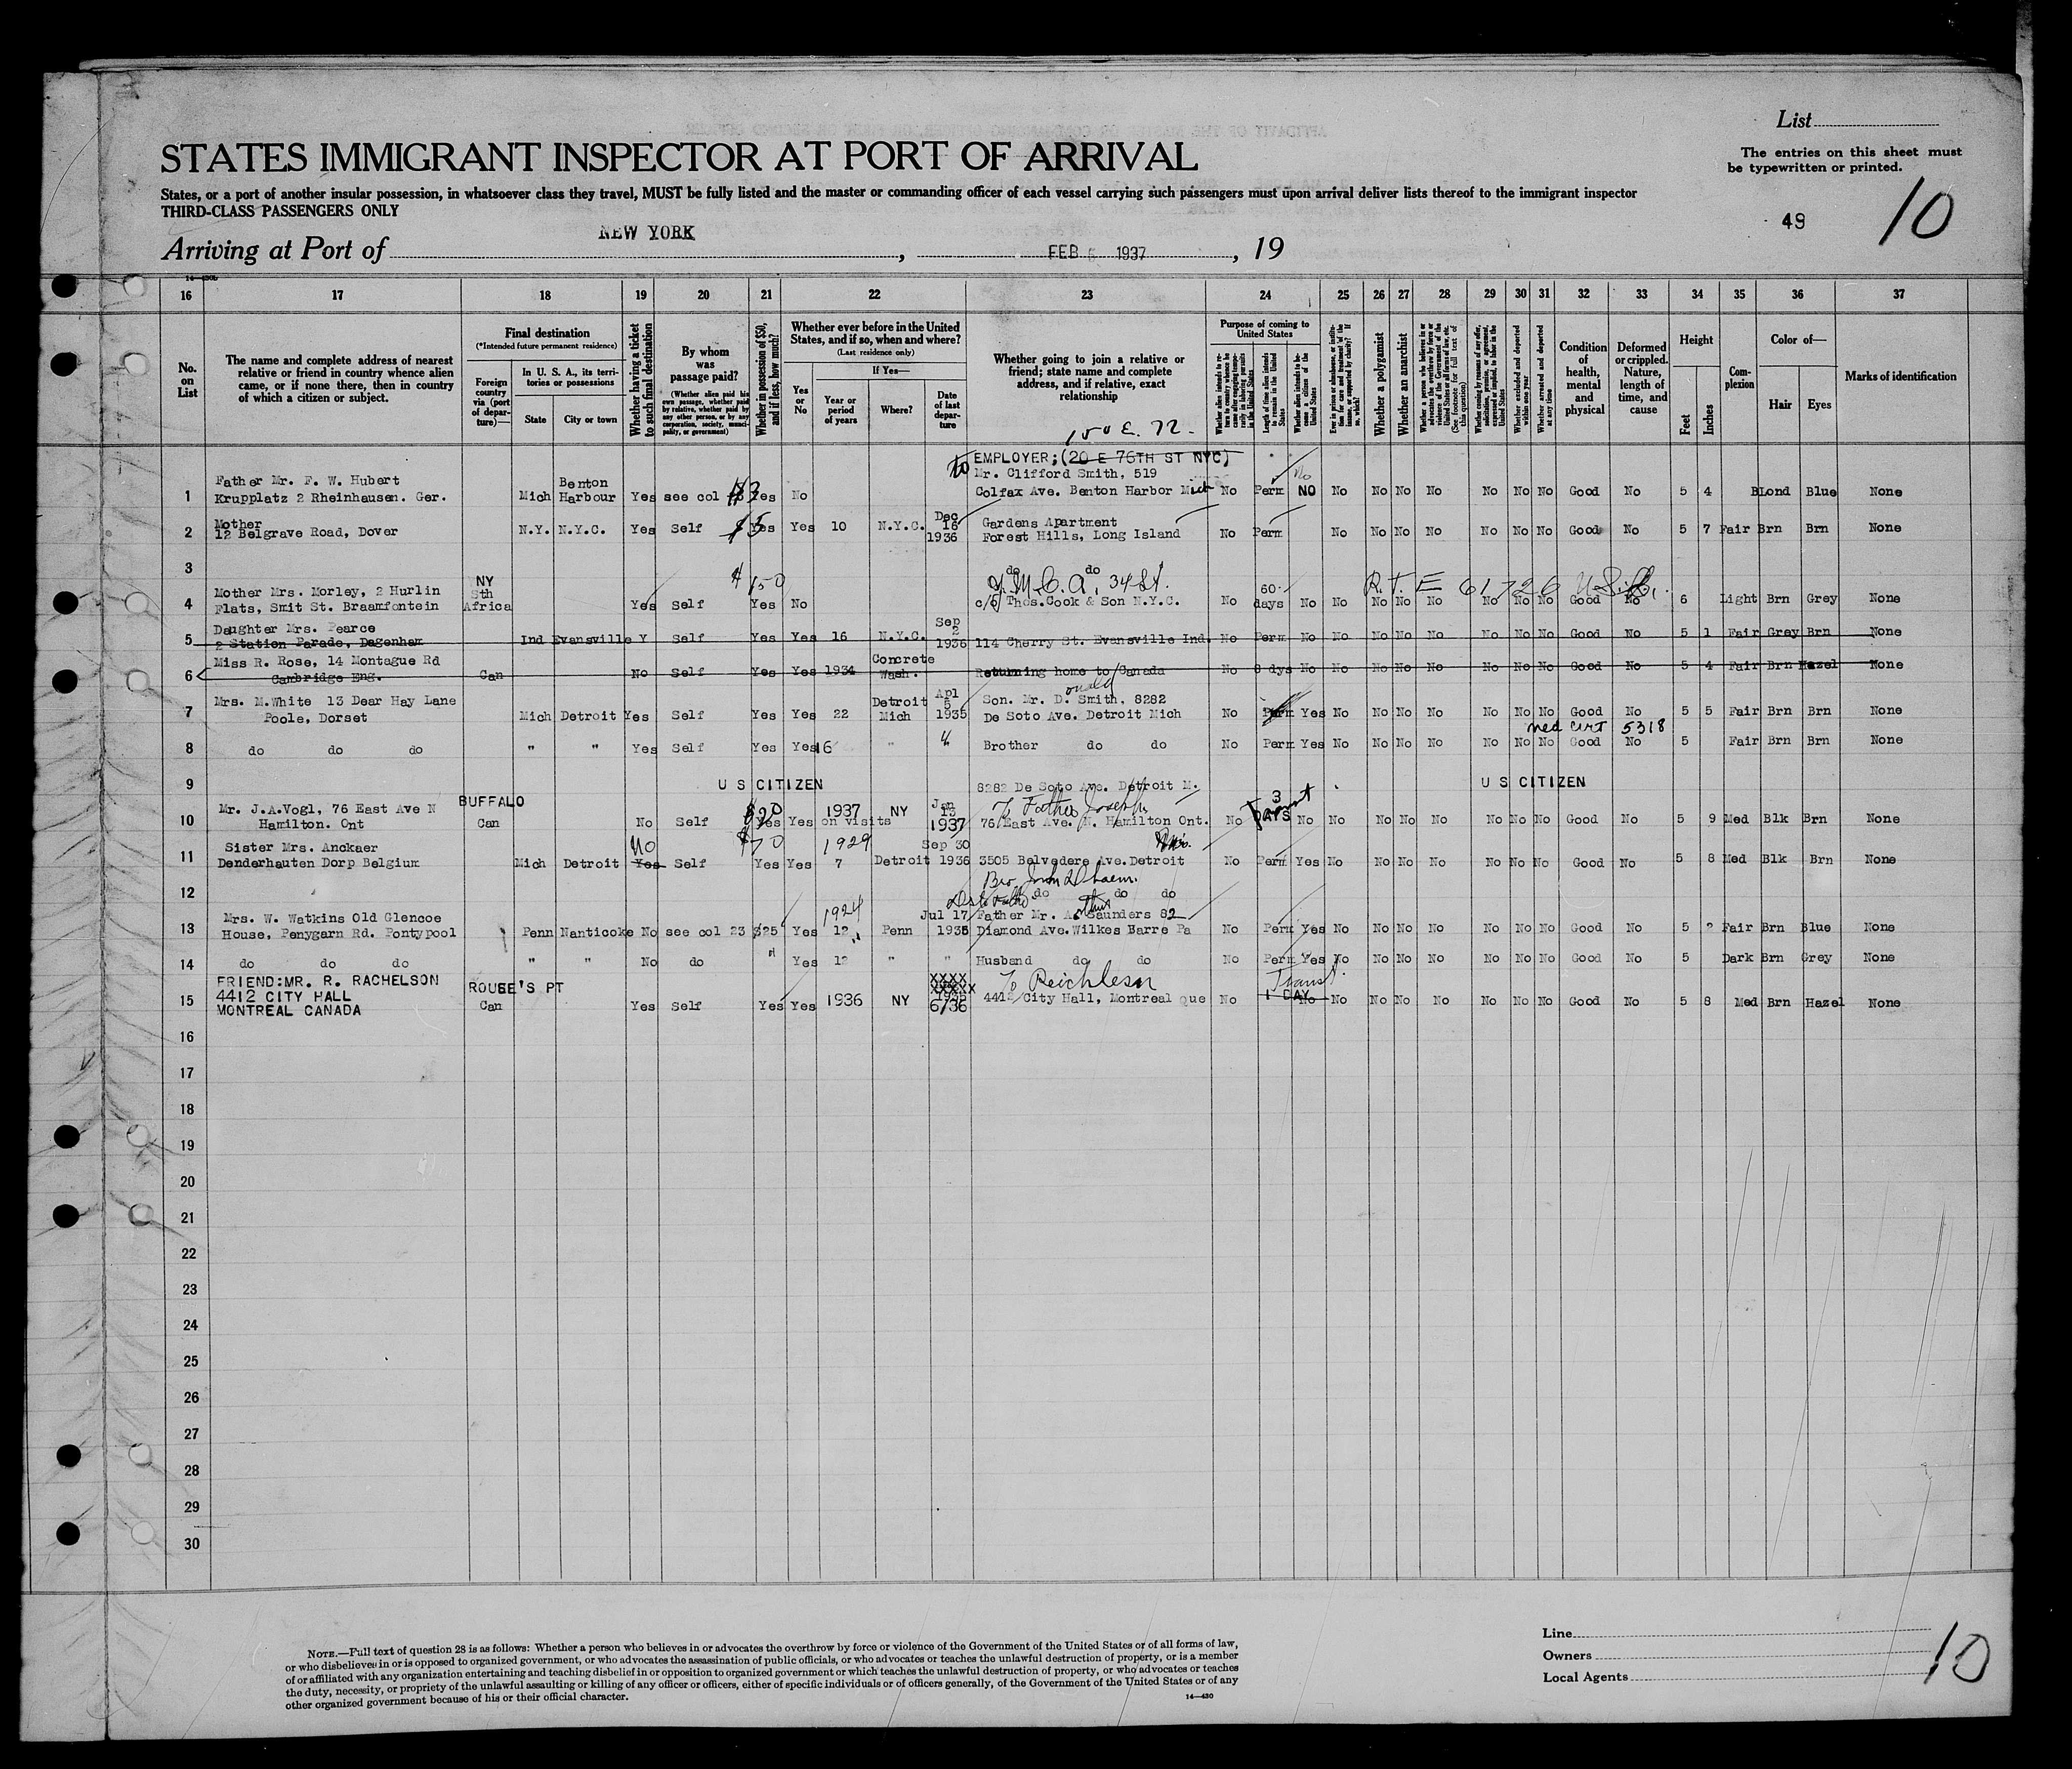 List
STATES IMMIGRANT INSPECTOR AT PORT OF ARRIVAL
The entries on this sheet must
be typewritten or printed.
States, or a port of another insular possession, in whatsoever class they travel, MUST be fully listed and the master or commanding officer of each vessel carrying such passengers must upon arrival deliver lists thereof to the immigrant inspector
THIRD-CLASS PASSENGERS ONLY
49 10
Arriving at Port of NEW YORK, FEB 5 1937, 19
14-430b
16 17 18 19 20 21 22 23 24 25 26 27 28 29 30 31 32 33 34 35 36 37
No. on List
The name and complete address of nearest relative or friend in country whence alien came, or if none there, then in country of which a citizen or subject.
Final destination
(*Intended future permanent residence)
Foreign country via (port of departure)—
In U. S. A., its territories or possessions
State City or town
Whether having a ticket to such final destination
By whom was passage paid?
(Whether alien paid his own passage, whether paid by relative, whether paid by any other person, or by any corporation, society, municipality, or government)
Whether in possession of $50, and if less, how much?
Whether ever before in the United States, and if so, when and where?
(Last residence only)
Yes or No
If Yes—
Year or period of years Where? Date of last departure
Whether going to join a relative or friend; state name and complete address, and if relative, exact relationship
Purpose of coming to United States
Whether alien intends to return to country whence he came after engaging temporarily in laboring pursuits in the United States
Length of time alien intends to remain in the United States
Whether alien intends to become a citizen of the United States
Ever in prison or almshouse, or institution for care and treatment of the insane, or supported by charity? If so, which?
Whether a polygamist
Whether an anarchist
Whether a person who believes in or advocates the overthrow by force or violence of the Government of the United States or all forms of law, etc. (See footnote for full text of this question)
Whether coming by reasons of any offer, solicitation, promise, or agreement, expressed or implied, to labor in the United States
Whether excluded and deported within one year
Whether arrested and deported at any time
Condition of health, mental and physical
Deformed or crippled. Nature, length of time, and cause
Height
Feet Inches
Complexion
Color of—
Hair Eyes
Marks of identification
150 E. 72.
to EMPLOYER;(20 E 76TH ST NYC)
Father Mr. F. W. Hubert Benton Mr. Clifford Smith, 519 No
1 Krupplatz 2 Rheinhausen. Ger. Mich Harbour Yes see col Yes No Colfax Ave. Benton Harbor Mich No Perm NO No No No No No No No Good No 5 4 BLond Blue None
Mother Dec 16 Gardens Apartment
2 12 Belgrave Road, Dover N.Y. N.Y.C. Yes Self $5 Yes Yes 10 N.Y.C. 1936 Forest Hills, Long Island No Perm No No No No No No No Good No 5 7 Fair Brn Brn None
3 do do
Mother Mrs. Morley, 2 Hurlin NY Sth $150 Y.M.C.A, 34 St. 60 R.T.E 61726
4 Flats, Smit St. Braamfontein Africa Yes Self Yes No c/o Thos.Cook & Son N.Y.C. No days No No No No No No No No Good No 6 Light Brn Grey None
Daughter Mrs. Pearce Sep 2
5 2 Station Parade, Dagenham Ind Evansville Y Self Yes Yes 16 N.Y.C. 1936 114 Cherry St. Evansville Ind. No Perm No No No No No No No No Good No 5 1 Fair Grey Brn None
Miss R. Rose, 14 Montague Rd Concrete
6 Cambridge Eng. Can No Self Yes Yes 1934 Wash. Returning home to Canada No 8 dys No No No No No No No No Good No 5 4 Fair Brn Hazel None
Mrs. M.White 13 Dear Hay Lane Detroit Apl 5 Son. Mr. Donald Smith, 8282
7 Poole, Dorset Mich Detroit Yes Self Yes Yes 22 Mich 1935 De Soto Ave. Detroit Mich No Perm Yes No No No No No No No Good No 5 5 Fair Brn Brn None
med cert 5318
8 do do do " " Yes Self Yes Yes 16 " Brother do do No Perm Yes No No No No No No No Good No 5 Fair Brn Brn None
9 U S CITIZEN 8282 De Soto Ave. Detroit M. U S CITIZEN
Mr. J.A.Vogl, 76 East Ave N BUFFALO $20 1937 NY Jan 13 To Father Joseph 3 Transit
10 Hamilton. Ont Can No Self Yes Yes on visits 1937 76 East Ave. N. Hamilton Ont. No DAYS No No No No No No No No Good No 5 9 Med Blk Brn None
Sister Mrs. Anckaer No $70 1929 Sep 30
11 Denderhauten Dorp Belgium Mich Detroit Yes Self Yes Yes 7 Detroit 1936 3505 Belvedere Ave.Detroit No Perm Yes No No No No No No No Good No 5 8 Med Blk Brn None
12 do do do
Mrs. W. Watkins Old Glencoe 1924 Jul 17 Father Mr. Arthur Saunders 82
13 House, Penygarn Rd. Pontypool Penn Nanticoke No see col 23 $25 Yes 12 Penn 1936 Diamond Ave.Wilkes Barre Pa No Perm Yes No No No No No No No Good No 5 2 Fair Brn Blue None
14 do do do " " No do " Yes 12 " " Husband do do No Perm Yes No No No No No No No Good No 5 Dark Brn Grey None
FRIEND:MR. R. RACHELSON ROUSE'S PT XXXX To Reichleson Transit
15 4412 CITY HALL Can Yes Self Yes Yes 1936 NY 6/36 4412 City Hall, Montreal Que No 1 DAY No No No No No No No No Good No 5 8 Med Brn Hazel None
MONTREAL CANADA
16
17
18
19
20
21
22
23
24
25
26
27
28
29
30
NOTE.—Full text of question 28 is as follows: Whether a person who believes in or advocates the overthrow by force or violence of the Government of the United States or of all forms of law,
or who disbelieves in or is opposed to organized government, or who advocates the assassination of public officials, or who advocates or teaches the unlawful destruction of property, or is a member
of or affiliated with any organization entertaining and teaching disbelief in or opposition to organized government or which teaches the unlawful destruction of property, or who advocates or teaches
the duty, necessity, or propriety of the unlawful assaulting or killing of any officer or officers, either of specific individuals or of officers generally, of the Government of the United States or of any
other organized government because of his or their official character.
14—430
Line
Owners
Local Agents
10